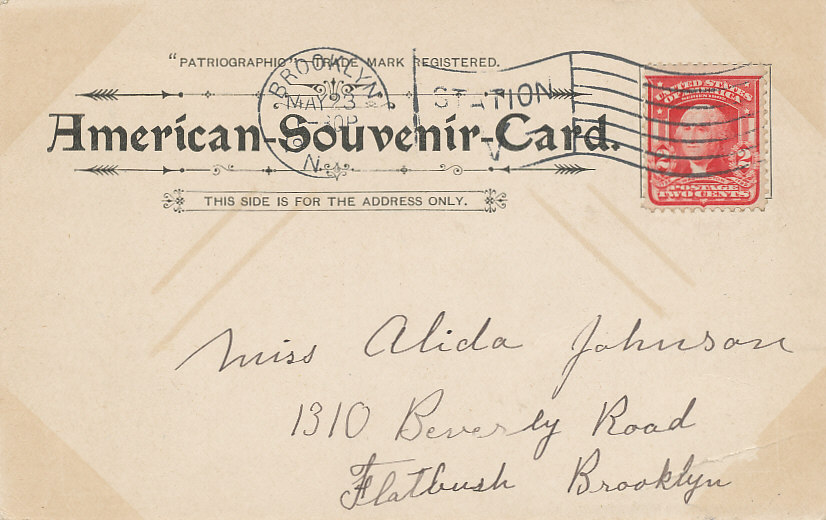 "PATRIOGRAPHIC" TRADE MARK REGISTERED.
American-Souvenir-Card.
THIS SIDE IS FOR THE ADDRESS ONLY.
BROOKLYN
MAY 23
-30P
N.
STATION
V
UNITED STATES
OF AMERICA
2 2
POSTAGE
TWO CENTS
Miss Alida Johnson
1310 Beverly Road
Flatbush Brooklyn